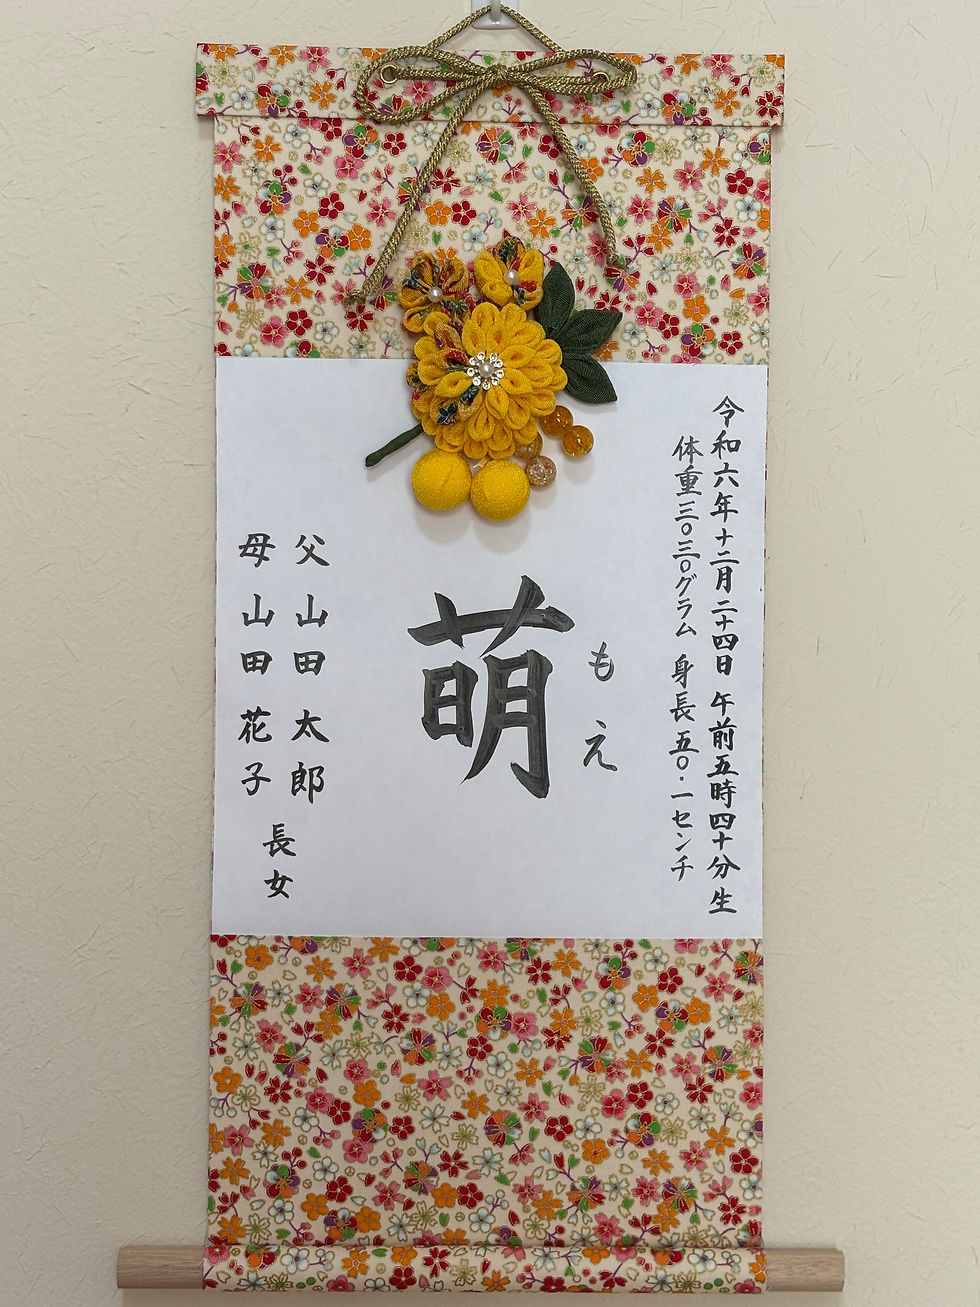 令和六年十二月二十四日 午前五時四十分生
体重三〇三〇グラム 身長五〇・一センチ
もえ
萌
父 山田 太郎
母 山田 花子
長女